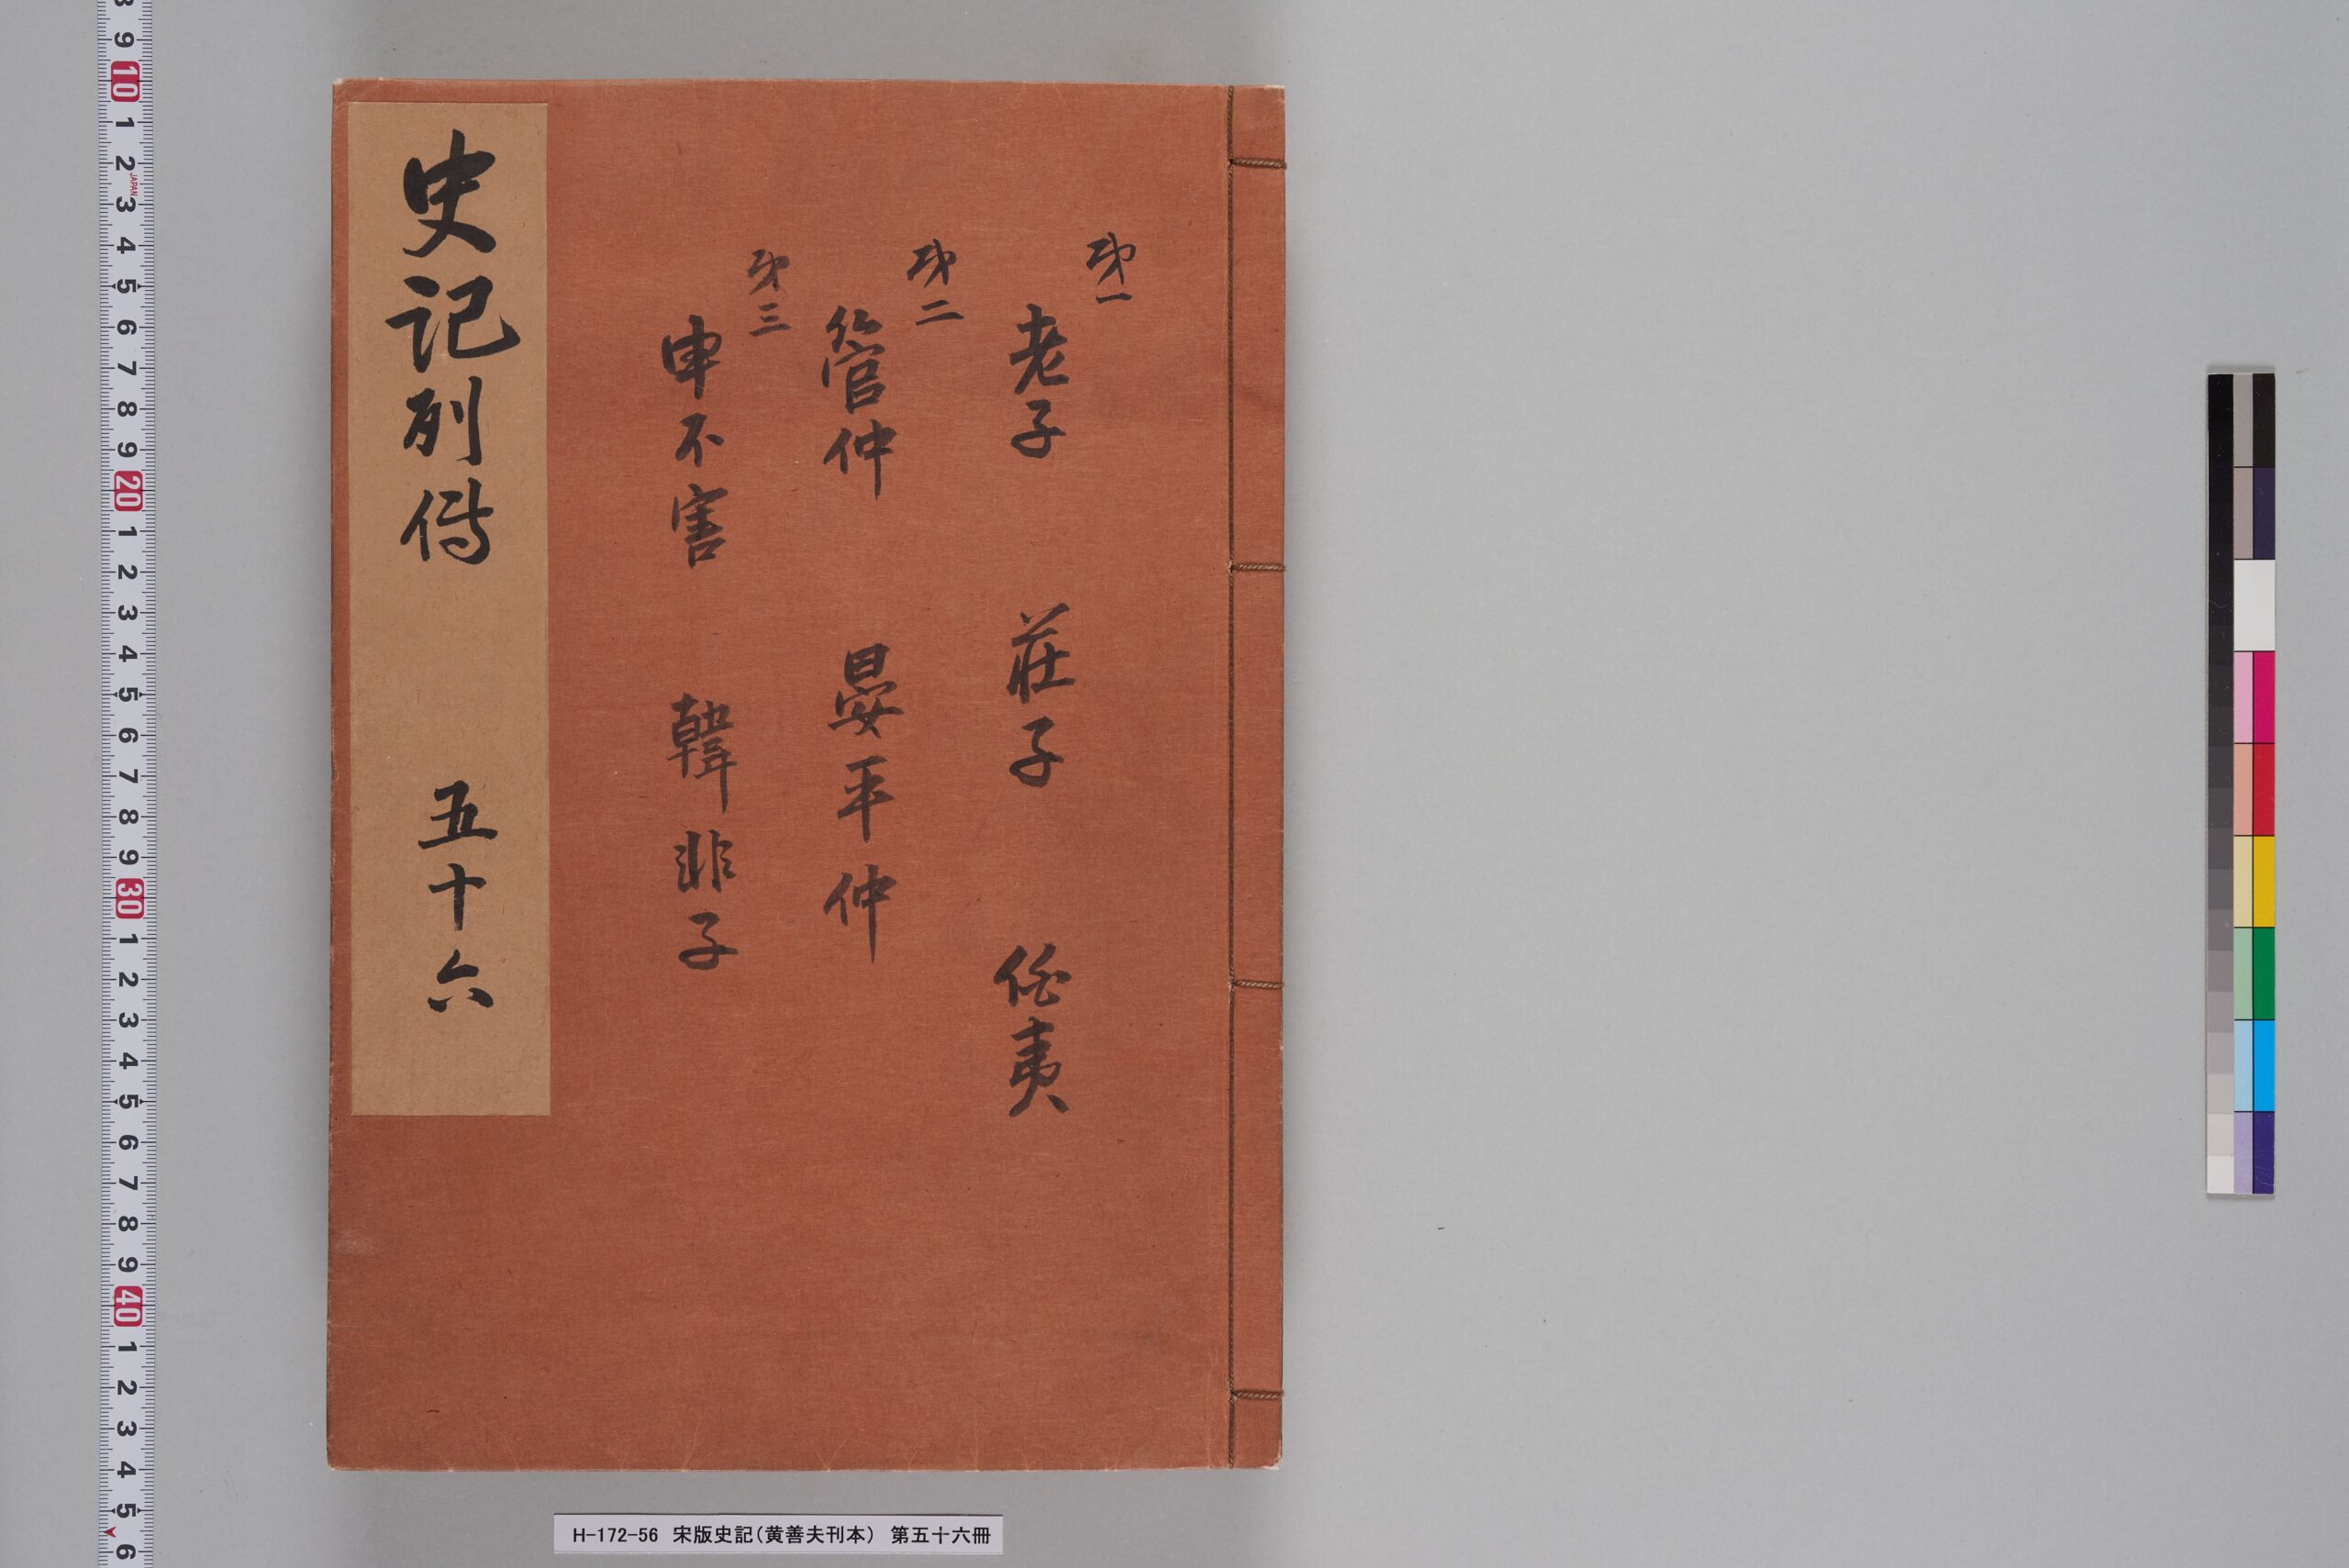 第一
老子 莊子 伯夷
第二
管仲 晏平仲
第三
申不害 韓非子
史記列傳 五十六
H-172-56 宋版史記(黄善夫刊本) 第五十六冊
9 10 1 2 3 4 5 6 7 8 9 20 1 2 3 4 5 6 7 8 9 30 1 2 3 4 5 6 7 8 9 40 1 2 3 4 5 6
JAPAN